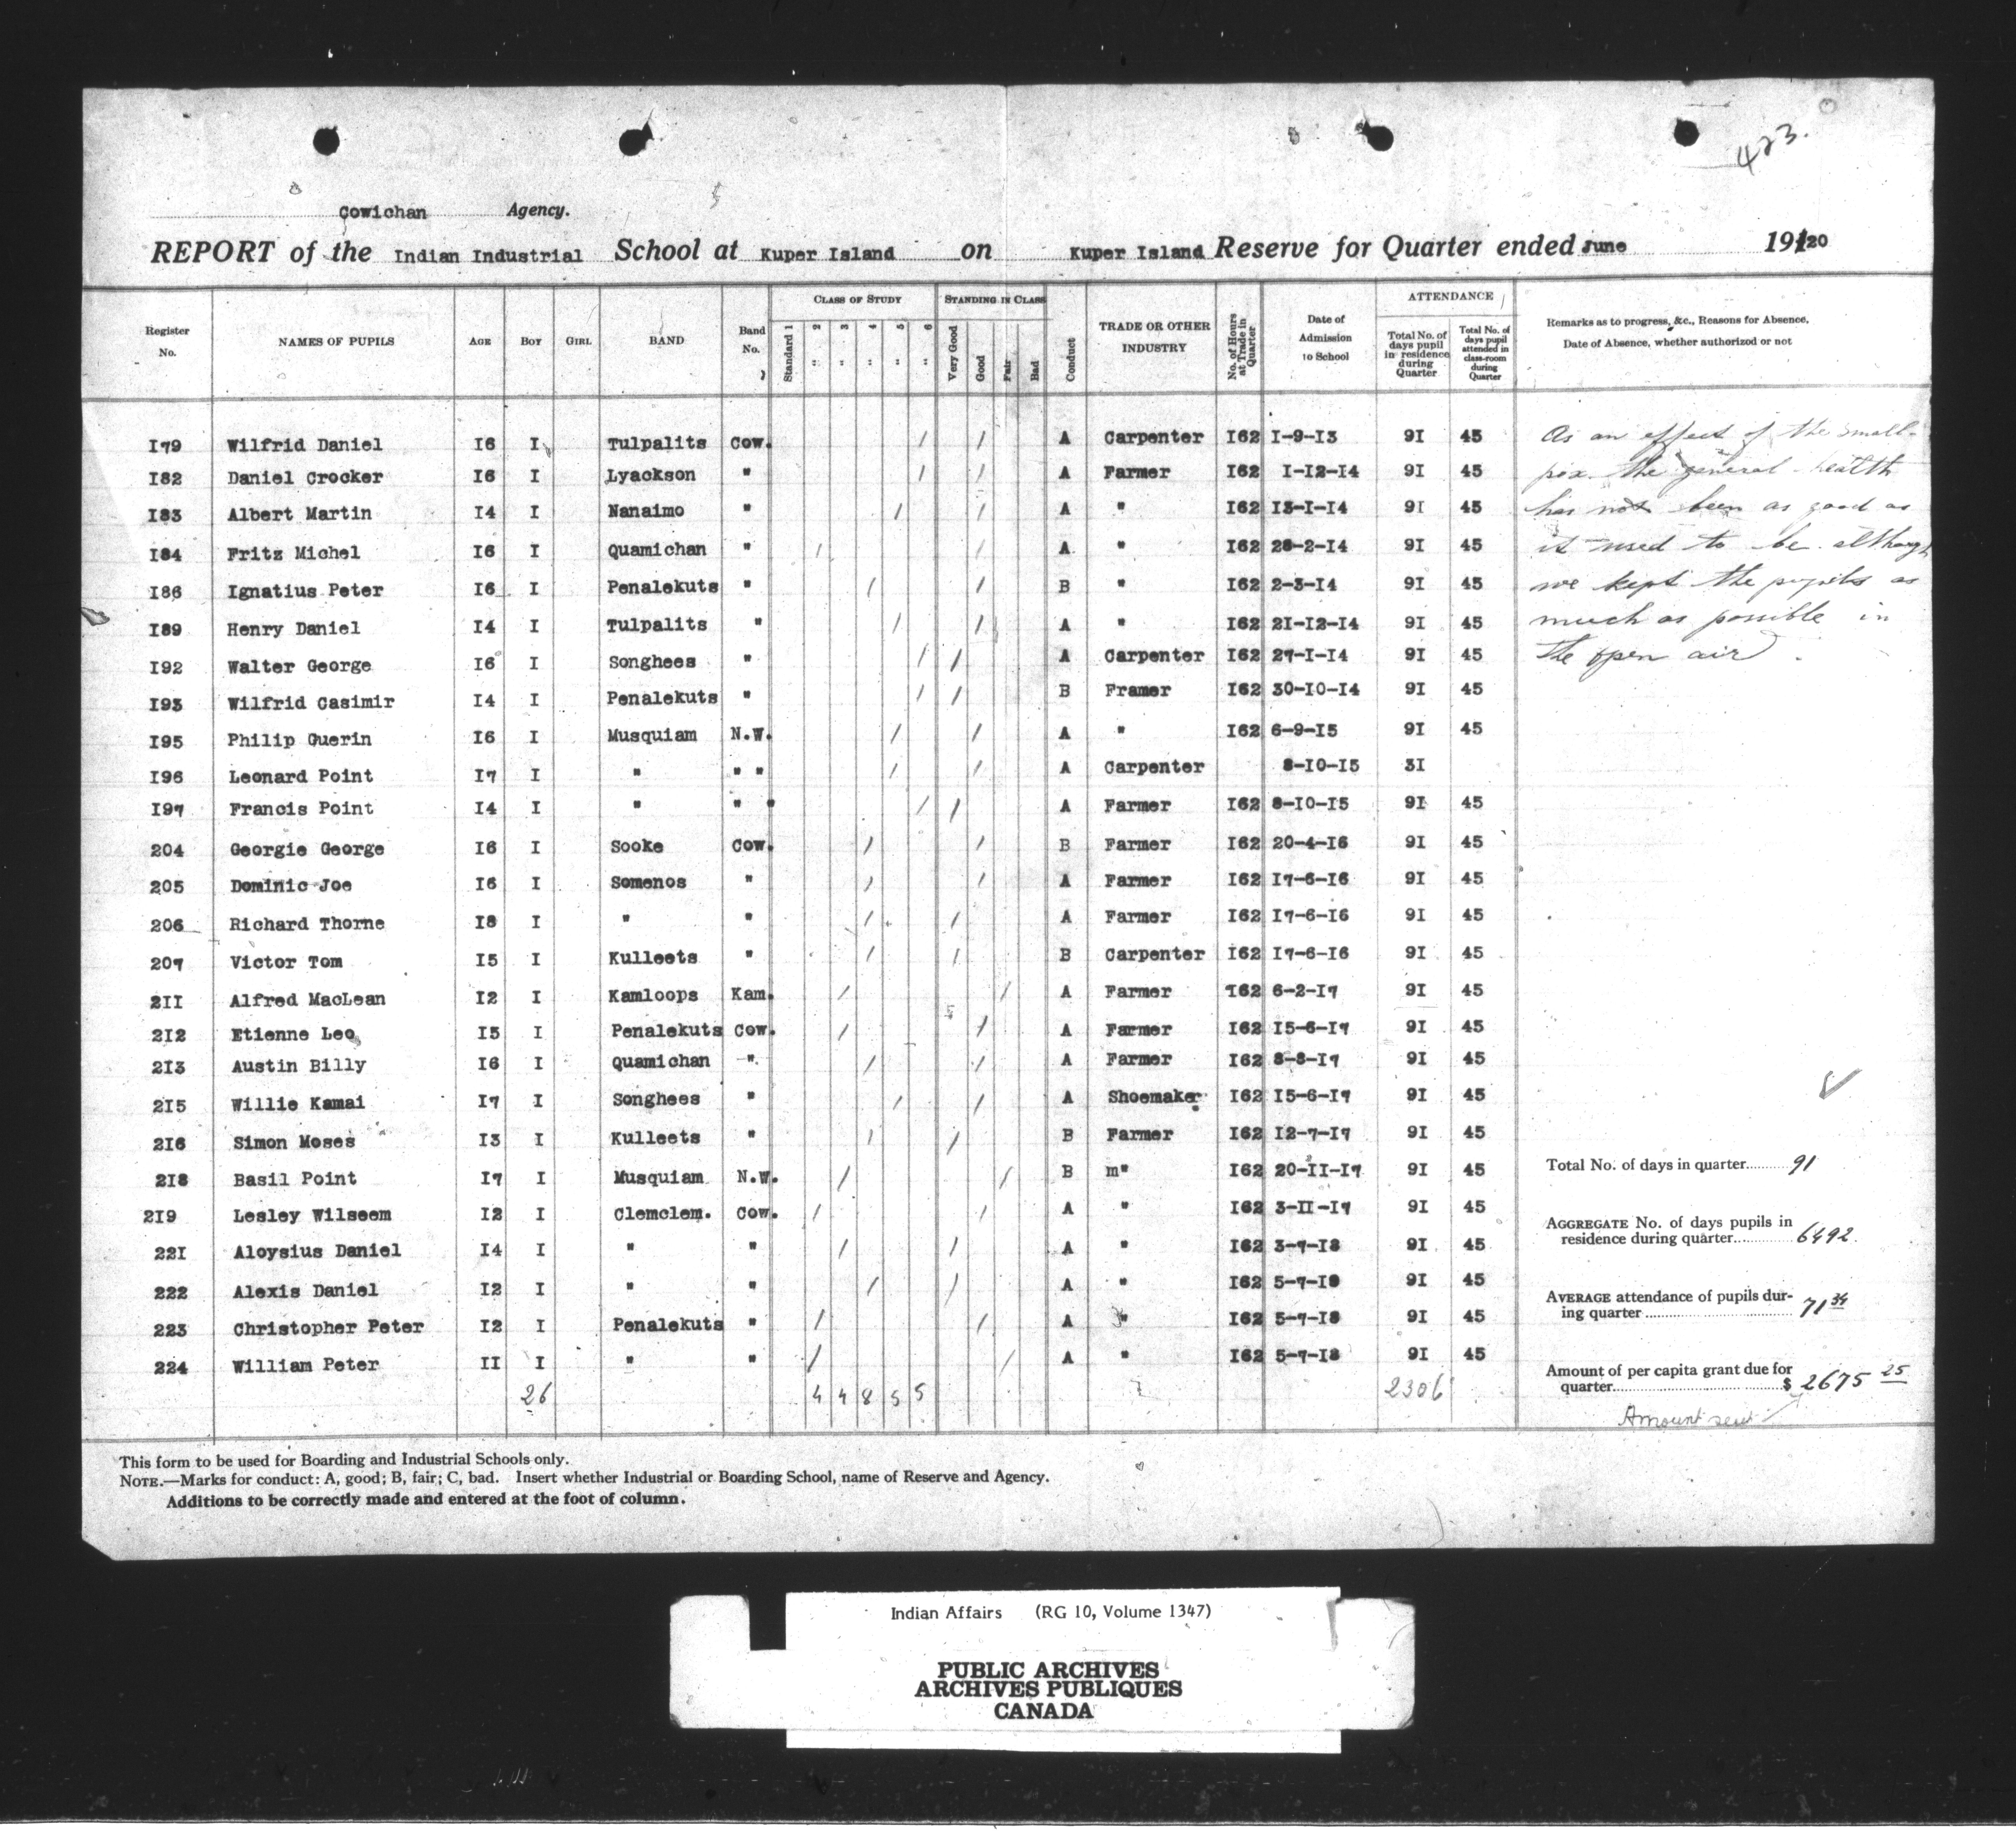 423.
Cowichan Agency.
REPORT of the Indian Industrial School at Kuper Island on Kuper Island Reserve for Quarter ended June 19120
Register No. NAMES OF PUPILS AGE BOY GIRL BAND Band No. CLASS OF STUDY Standard 1 " 2 " 3 " 4 " 5 " 6 STANDING IN CLASS Very Good Good Fair Bad Conduct TRADE OR OTHER INDUSTRY No. of Hours at Trade in Quarter Date of Admission to School ATTENDANCE Total No. of days pupil in residence during Quarter Total No. of days pupil attended in class-room during Quarter Remarks as to progress, &c., Reasons for Absence, Date of Absence, whether authorized or not
I79 Wilfrid Daniel I6 I Tulpalits Cow. / / A Carpenter I62 I-9-I3 9I 45 As an effect of the small-
I82 Daniel Crocker I6 I Lyackson " / / A Farmer I62 I-I2-I4 9I 45 pox the general health
I83 Albert Martin I4 I Nanaimo " / / A " I62 I3-I-I4 9I 45 has not been as good as
I84 Fritz Michel I6 I Quamichan " / / A " I62 28-2-I4 9I 45 it used to be although
I86 Ignatius Peter I6 I Penalekuts " / / B " I62 2-3-I4 9I 45 we kept the pupils as
I89 Henry Daniel I4 I Tulpalits " / / A " I62 2I-I2-I4 9I 45 much as possible in
I92 Walter George I6 I Songhees " / / A Carpenter I62 27-I-I4 9I 45 the open air.
I93 Wilfrid Casimir I4 I Penalekuts " / / B Framer I62 30-I0-I4 9I 45
I95 Philip Guerin I6 I Musquiam N.W. / / A " I62 6-9-I5 9I 45
I96 Leonard Point I7 I " " " / / A Carpenter 8-I0-I5 3I
I97 Francis Point I4 I " " " / / A Farmer I62 8-I0-I5 9I 45
204 Georgie George I6 I Sooke Cow. / / B Farmer I62 20-4-I6 9I 45
205 Dominic Joe I6 I Somenos " / / A Farmer I62 I7-6-I6 9I 45
206 Richard Thorne I8 I " " / / A Farmer I62 I7-6-I6 9I 45
207 Victor Tom I5 I Kulleets " / / B Carpenter I62 I7-6-I6 9I 45
2II Alfred MacLean I2 I Kamloops Kam. / / A Farmer I62 6-2-I7 9I 45
2I2 Etienne Leo I5 I Penalekuts Cow. / / A Farmer I62 I5-6-I7 9I 45
2I3 Austin Billy I6 I Quamichan " / / A Farmer I62 8-8-I7 9I 45
2I5 Willie Kamai I7 I Songhees " / / A Shoemaker I62 I5-6-I7 9I 45
2I6 Simon Moses I3 I Kulleets " / / B Farmer I62 I2-7-I7 9I 45
2I8 Basil Point I7 I Musquiam N.W. / / B m" I62 20-II-I7 9I 45
Total No. of days in quarter 91
2I9 Lesley Wilseem I2 I Clemclem. Cow. / / A " I62 3-II-I7 9I 45
AGGREGATE No. of days pupils in residence during quarter 6492.
22I Aloysius Daniel I4 I " " / / A " I62 3-7-I8 9I 45
222 Alexis Daniel I2 I " " / / A " I62 5-7-I8 9I 45
AVERAGE attendance of pupils during quarter 71 34
223 Christopher Peter I2 I Penalekuts " / / A " I62 5-7-I8 9I 45
224 William Peter II I " " / / A " I62 5-7-I8 9I 45
Amount of per capita grant due for quarter $ 2675 25
26 4 4 8 5 5 2306
Amount sent
This form to be used for Boarding and Industrial Schools only.
NOTE.—Marks for conduct: A, good; B, fair; C, bad. Insert whether Industrial or Boarding School, name of Reserve and Agency.
Additions to be correctly made and entered at the foot of column.
Indian Affairs (RG 10, Volume 1347)
PUBLIC ARCHIVES
ARCHIVES PUBLIQUES
CANADA